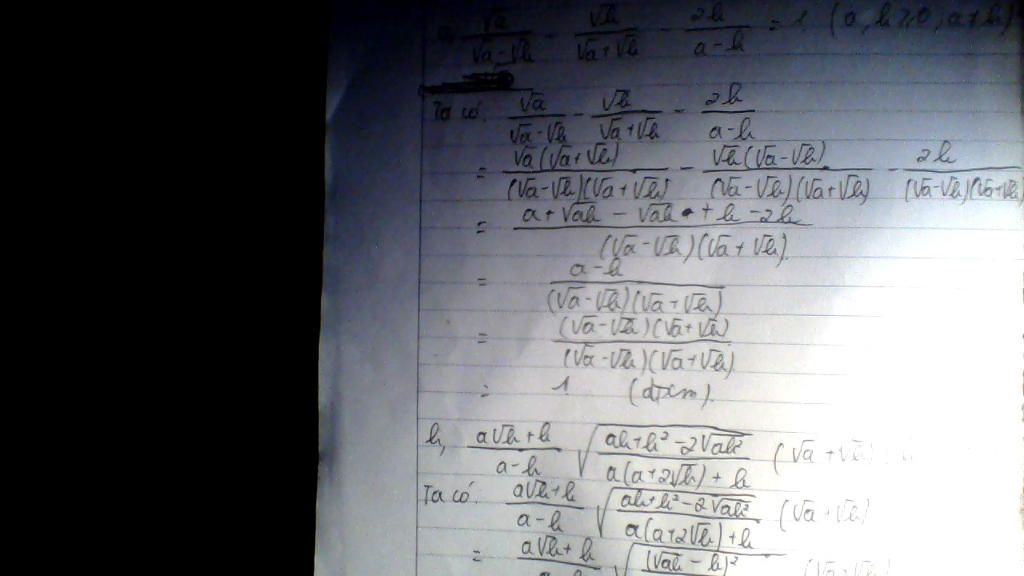 a, √a/(√a-√b) - √b/(√a+√b) - 2b/(a-b) = 1 (a, b ≥ 0, a ≠ b)
Ta có: √a/(√a-√b) - √b/(√a+√b) - 2b/(a-b)
= √a(√a+√b)/((√a-√b)(√a+√b)) - √b(√a-√b)/((√a-√b)(√a+√b)) - 2b/((√a-√b)(√a+√b))
= (a+√ab - √ab + b - 2b)/((√a-√b)(√a+√b))
= (a-b)/((√a-√b)(√a+√b))
= (√a-√b)(√a+√b)/((√a-√b)(√a+√b))
= 1 (đpcm).
b, (a√b+b)/(a-b) √((ab+b²-2√ab³)/(a(a+2√b)+b)) (√a+√b)
Ta có: (a√b+b)/(a-b) √((ab+b²-2√ab³)/(a(a+2√b)+b)) (√a+√b)
= (a√b+b)/(a-b) √((√ab-b)² (√a+√b)